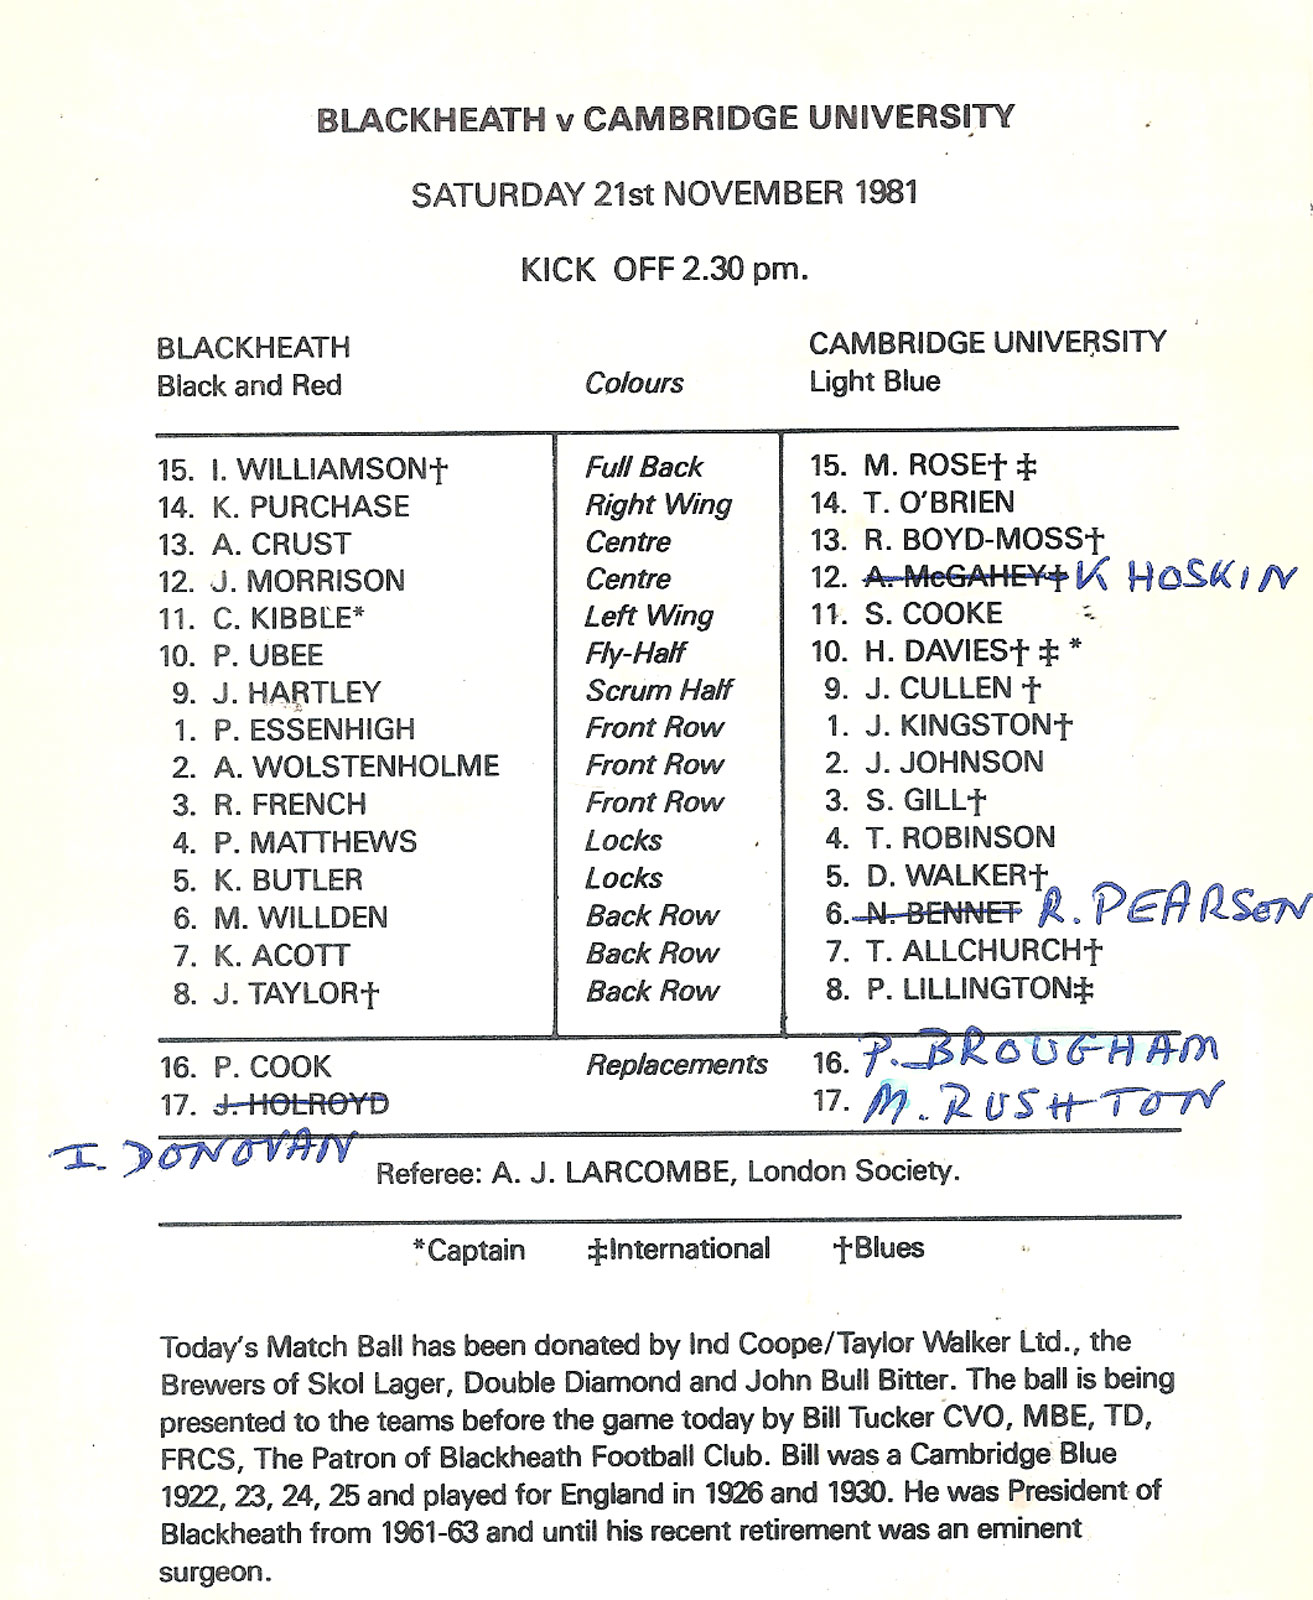 BLACKHEATH v CAMBRIDGE UNIVERSITY
SATURDAY 21st NOVEMBER 1981
KICK OFF 2.30 pm.
BLACKHEATH CAMBRIDGE UNIVERSITY
Black and Red Colours Light Blue
15. I. WILLIAMSON† Full Back 15. M. ROSE† ‡
14. K. PURCHASE Right Wing 14. T. O'BRIEN
13. A. CRUST Centre 13. R. BOYD-MOSS†
12. J. MORRISON Centre 12. A. McGAHEY† K HOSKIN
11. C. KIBBLE* Left Wing 11. S. COOKE
10. P. UBEE Fly-Half 10. H. DAVIES† ‡ *
9. J. HARTLEY Scrum Half 9. J. CULLEN †
1. P. ESSENHIGH Front Row 1. J. KINGSTON†
2. A. WOLSTENHOLME Front Row 2. J. JOHNSON
3. R. FRENCH Front Row 3. S. GILL†
4. P. MATTHEWS Locks 4. T. ROBINSON
5. K. BUTLER Locks 5. D. WALKER†
6. M. WILLDEN Back Row 6. N. BENNET R. PEARSON
7. K. ACOTT Back Row 7. T. ALLCHURCH†
8. J. TAYLOR† Back Row 8. P. LILLINGTON‡
16. P. COOK Replacements 16. P. BROUGHAM
17. J. HOLROYD 17. M. RUSHTON
I. DONOVAN
Referee: A. J. LARCOMBE, London Society.
*Captain ‡International †Blues
Today's Match Ball has been donated by Ind Coope/Taylor Walker Ltd., the
Brewers of Skol Lager, Double Diamond and John Bull Bitter. The ball is being
presented to the teams before the game today by Bill Tucker CVO, MBE, TD,
FRCS, The Patron of Blackheath Football Club. Bill was a Cambridge Blue
1922, 23, 24, 25 and played for England in 1926 and 1930. He was President of
Blackheath from 1961-63 and until his recent retirement was an eminent
surgeon.